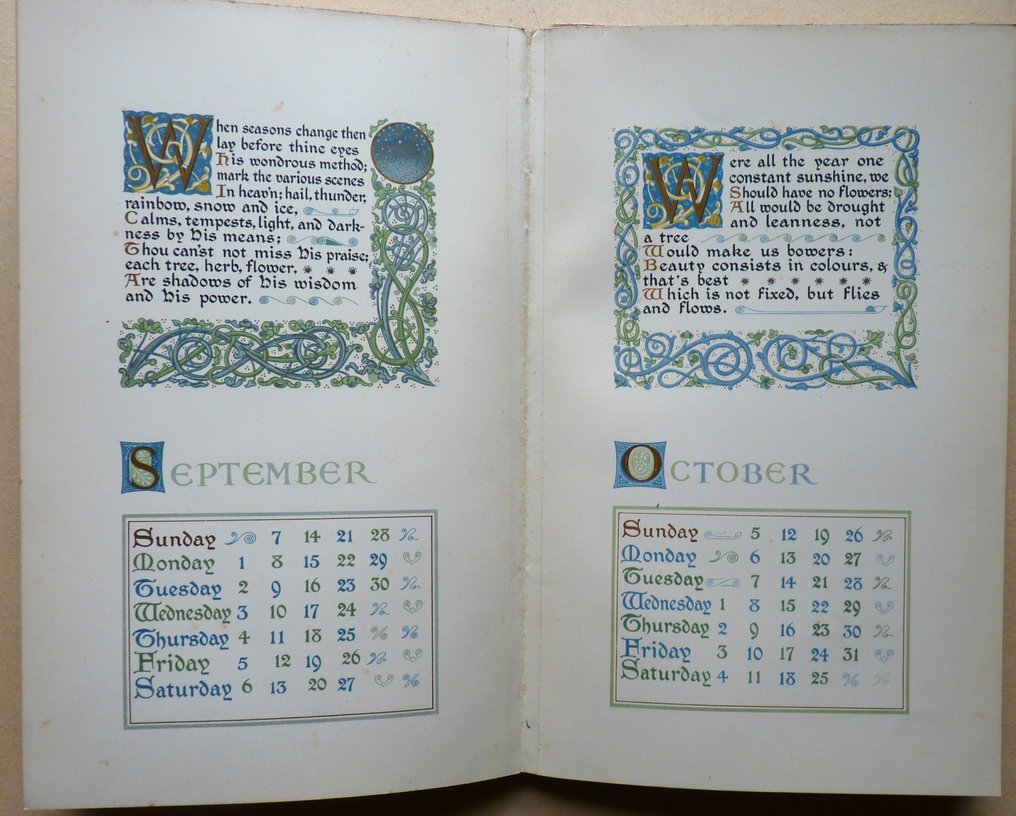 When seasons change then
lay before thine eyes
His wondrous method;
mark the various scenes
In heav'n; hail, thunder,
rainbow, snow and ice,
Calms, tempests, light, and dark-
ness by His means;
Thou can'st not miss His praise;
each tree, herb, flower,
Are shadows of His wisdom
and His power.
SEPTEMBER
Sunday 7 14 21 28
Monday 1 8 15 22 29
Tuesday 2 9 16 23 30
Wednesday 3 10 17 24
Thursday 4 11 18 25
Friday 5 12 19 26
Saturday 6 13 20 27
Were all the year one
constant sunshine, we
Should have no flowers;
All would be drought
and leanness, not
a tree
Would make us bowers:
Beauty consists in colours, &
that's best
Which is not fixed, but flies
and flows.
OCTOBER
Sunday 5 12 19 26
Monday 6 13 20 27
Tuesday 7 14 21 28
Wednesday 1 8 15 22 29
Thursday 2 9 16 23 30
Friday 3 10 17 24 31
Saturday 4 11 18 25